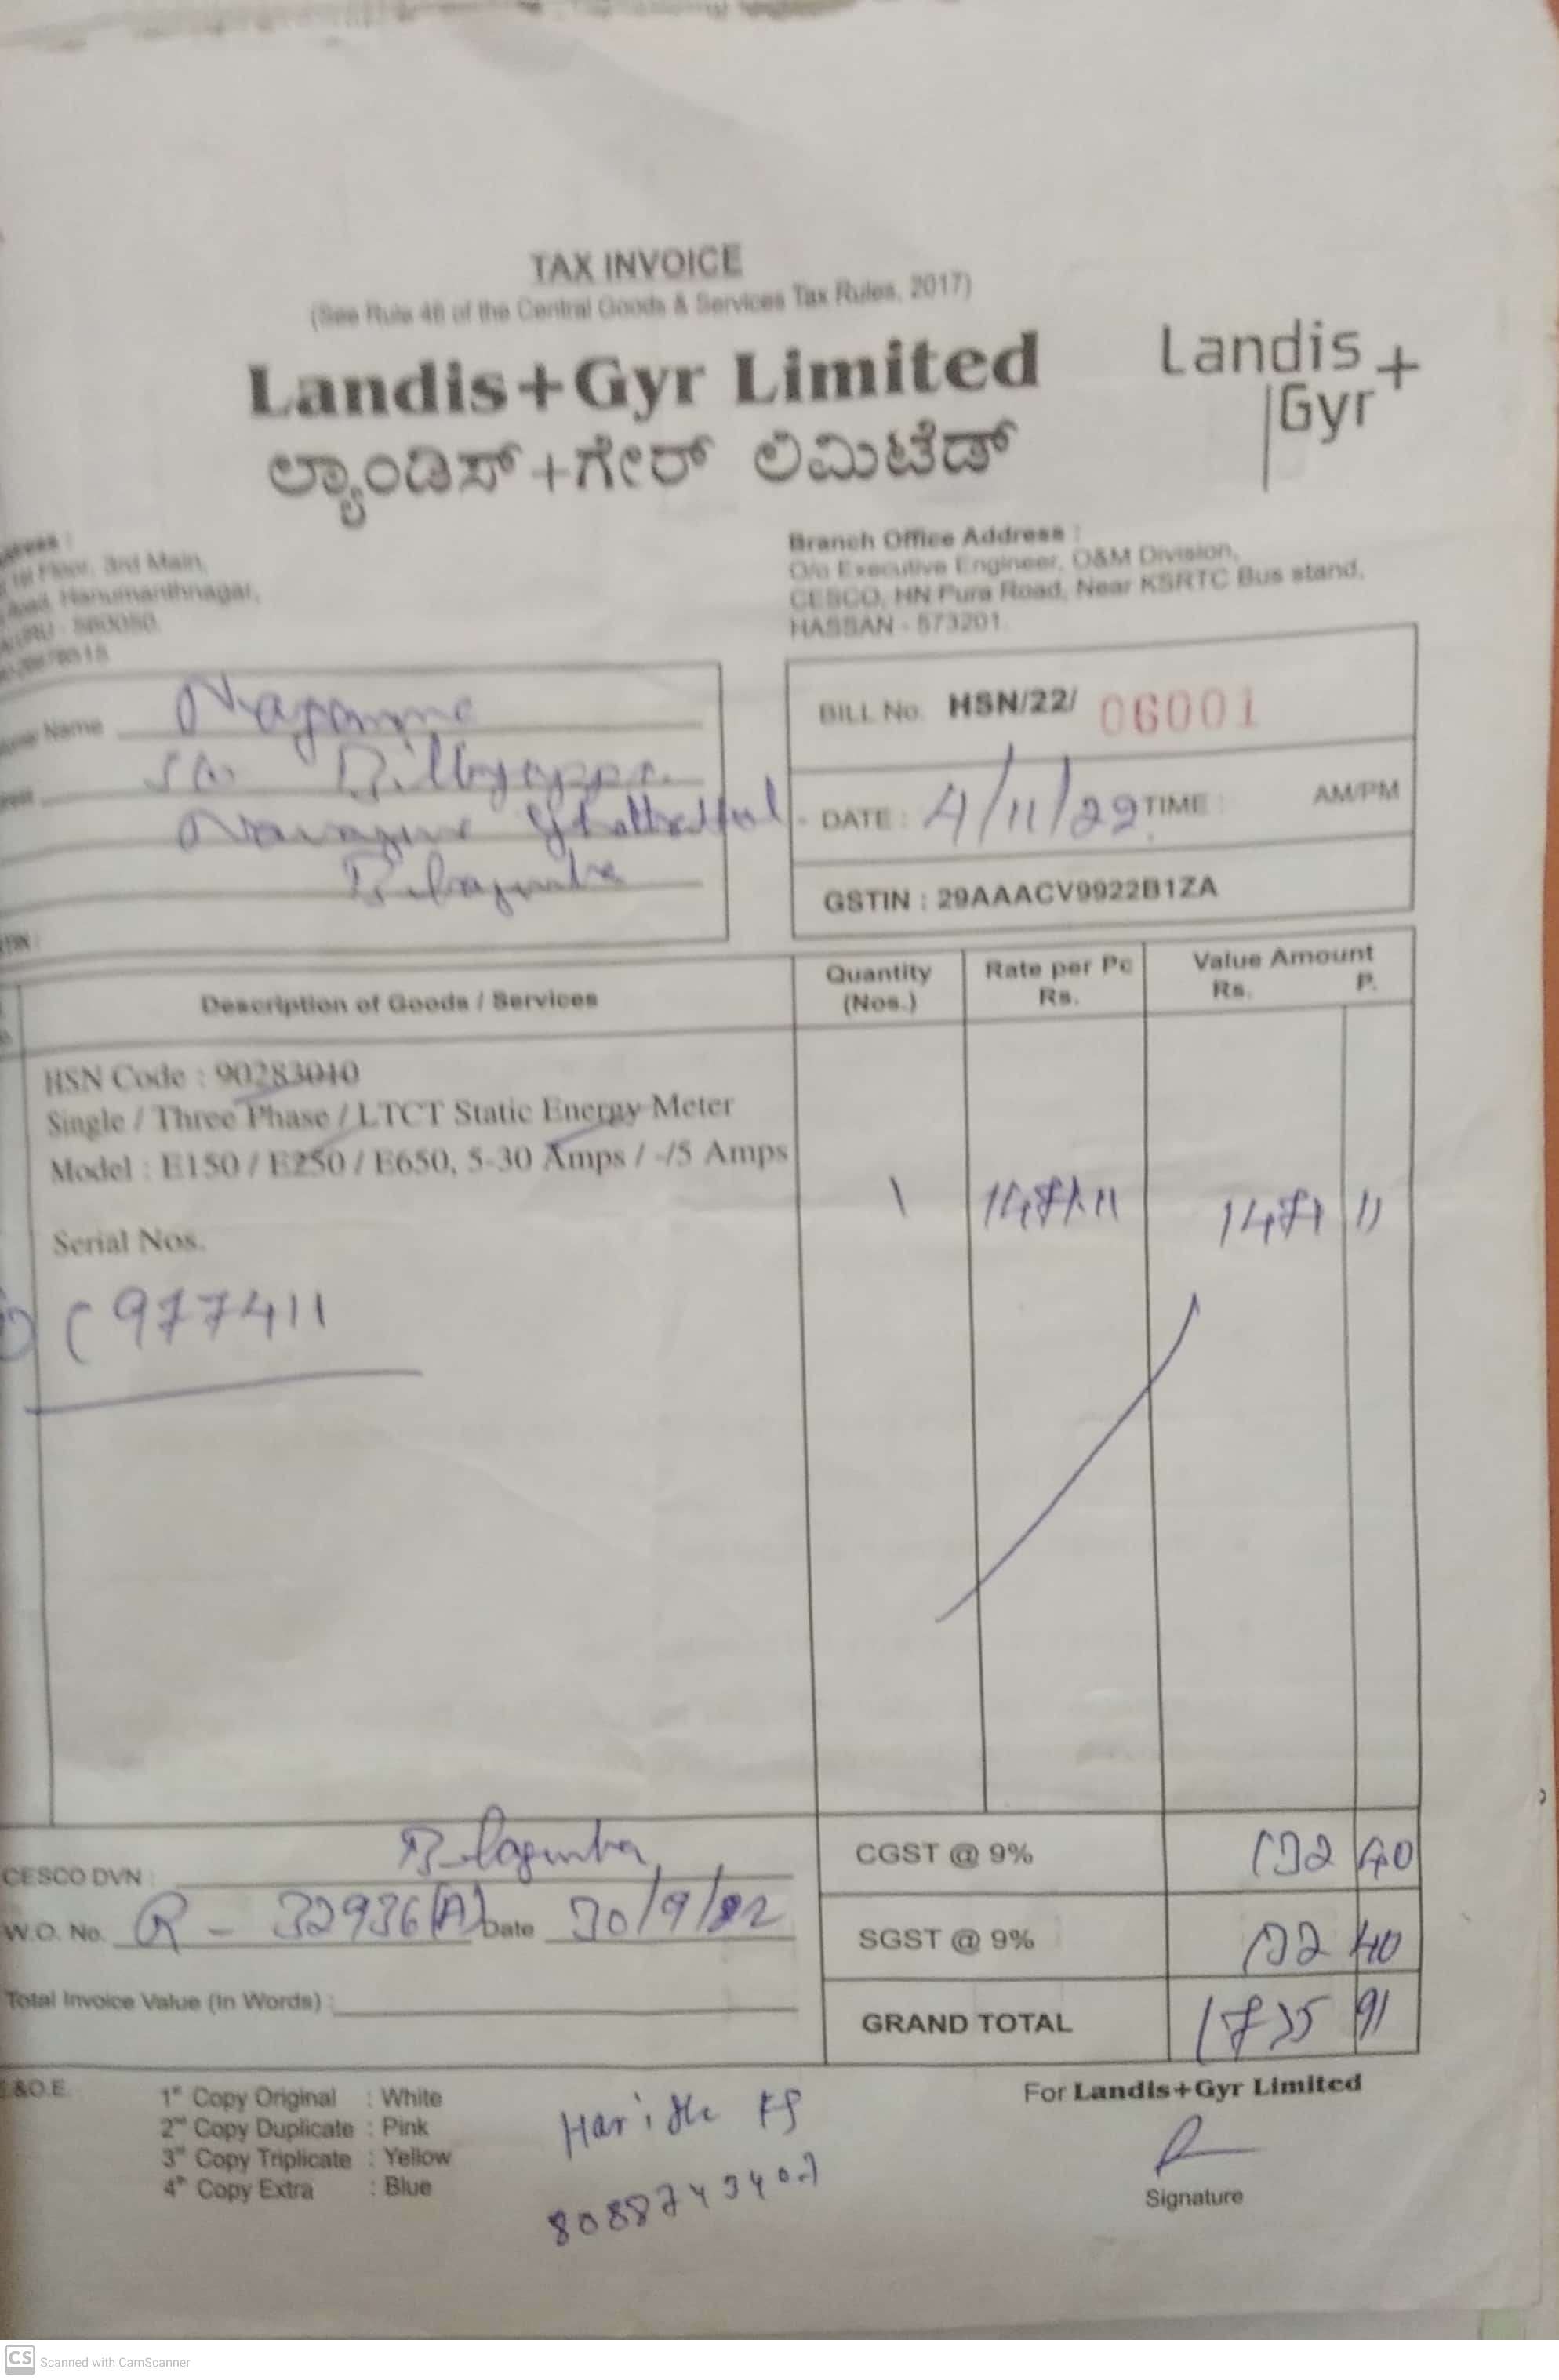 TAX INVOICE
(See Rule 46 of the Central Goods & Services Tax Rules, 2017)
Landis+Gyr Limited
ಲ್ಯಾಂಡಿಸ್+ಗೇರ್ ಲಿಮಿಟೆಡ್
Landis+
Gyr
1st Floor, 3rd Main,
Road, Hanumanthnagar,
560050
Branch Office Address :
O/o Executive Engineer, O&M Division,
CESCO, HN Pura Road, Near KSRTC Bus stand,
HASSAN - 573201.
Name
BILL No. HSN/22/ 06001
DATE : 4/11/22 TIME : AM/PM
GSTIN : 29AAACV9922B1ZA
Description of Goods / Services
Quantity (Nos.)
Rate per Pc Rs.
Value Amount Rs. P.
HSN Code : 90283010
Single / Three Phase / LTCT Static Energy Meter
Model : E150 / E250 / E650, 5-30 Amps / -/5 Amps
1 1471.11 1471 11
Serial Nos.
977411
CESCO DVN :
CGST @ 9% 132 40
W.O. No. R - 32936(A) Date 30/9/22
SGST @ 9% 132 40
Total Invoice Value (In Words) :
GRAND TOTAL 1735 91
E&O.E.
1st Copy Original : White
2nd Copy Duplicate : Pink
3rd Copy Triplicate : Yellow
4th Copy Extra : Blue
For Landis+Gyr Limited
Signature
CS Scanned with CamScanner